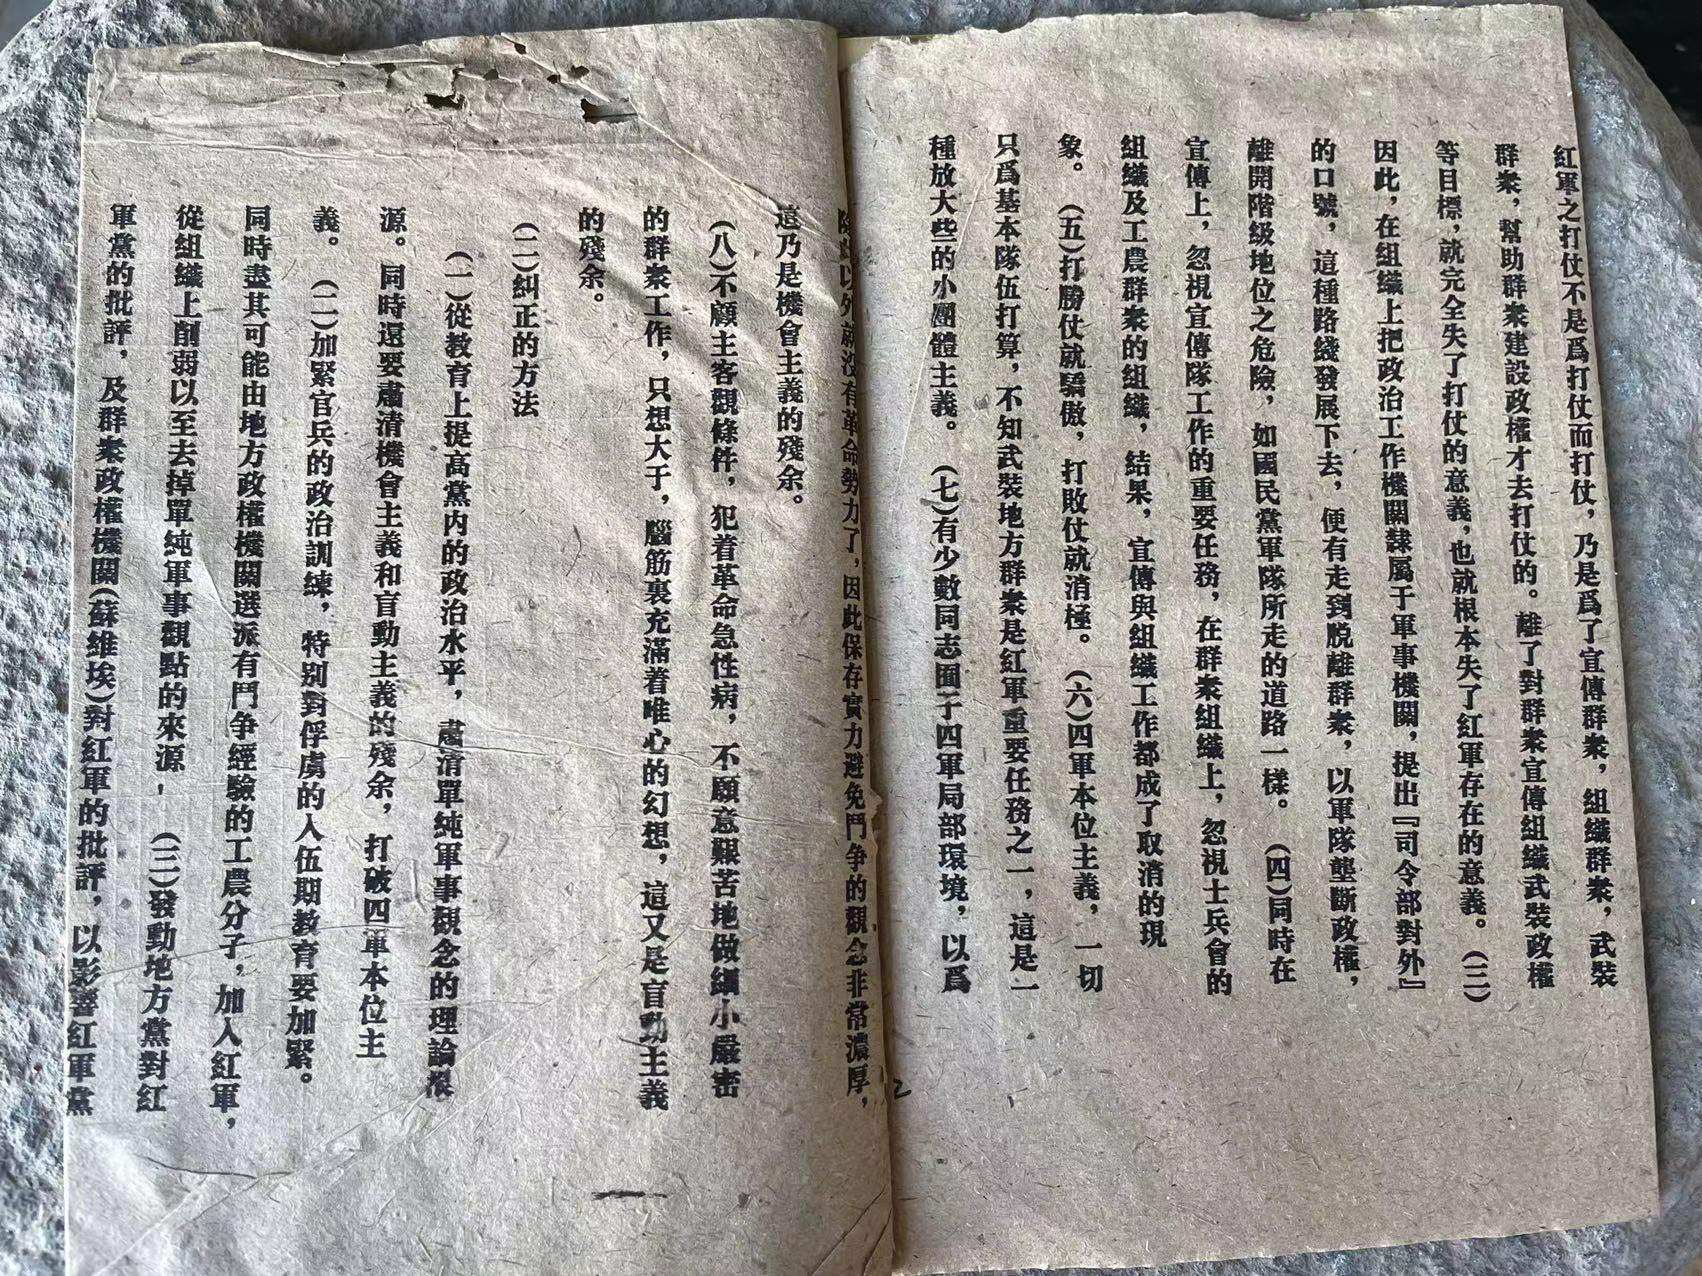 紅軍之打仗不是爲打仗而打仗，乃是爲了宣傳群衆，組織群衆，武裝
群衆，幫助群衆建設政權才去打仗的。離了對群衆宣傳組織武裝政權
等目標，就完全失了打仗的意義，也就根本失了紅軍存在的意義。（三）
因此，在組織上把政治工作機關隸属于軍事機關，提出『司令部對外』
的口號，這種路綫發展下去，便有走到脱離群衆，以軍隊壟斷政權，
離開階級地位之危險，如國民黨軍隊所走的道路一樣。（四）同時在
宣傳上，忽視宣傳隊工作的重要任務，在群衆組織上，忽視士兵會的
組織及工農群衆的組織，結果，宣傳與組織工作都成了取消的現
象。（五）打勝仗就驕傲，打敗仗就消極。（六）四軍本位主義，一切
只爲基本隊伍打算，不知武裝地方群衆是紅軍重要任務之一，這是一
種放大些的小團體主義。（七）有少數同志囿于四軍局部環境，以爲
除此以外就没有革命勢力了，因此保存實力避免鬥争的觀念非常濃厚，
這乃是機會主義的殘余。
（八）不顧主客觀條件，犯着革命急性病，不願意艱苦地做細小嚴密
的群衆工作，只想大干，腦筋裏充滿着唯心的幻想，這又是盲動主義
的殘余。
（二）糾正的方法
（一）從教育上提高黨内的政治水平，肅清單純軍事觀念的理論根
源。同時還要肅清機會主義和盲動主義的殘余，打破四軍本位主
義。（二）加緊官兵的政治訓練，特别對俘虜的入伍期教育要加緊。
同時盡其可能由地方政權機關選派有鬥争經驗的工農分子，加入紅軍，
從組織上削弱以至去掉單純軍事觀點的來源，（三）發動地方黨對紅
軍黨的批評，及群衆政權機關（蘇維埃）對紅軍的批評，以影響紅軍黨
2
一